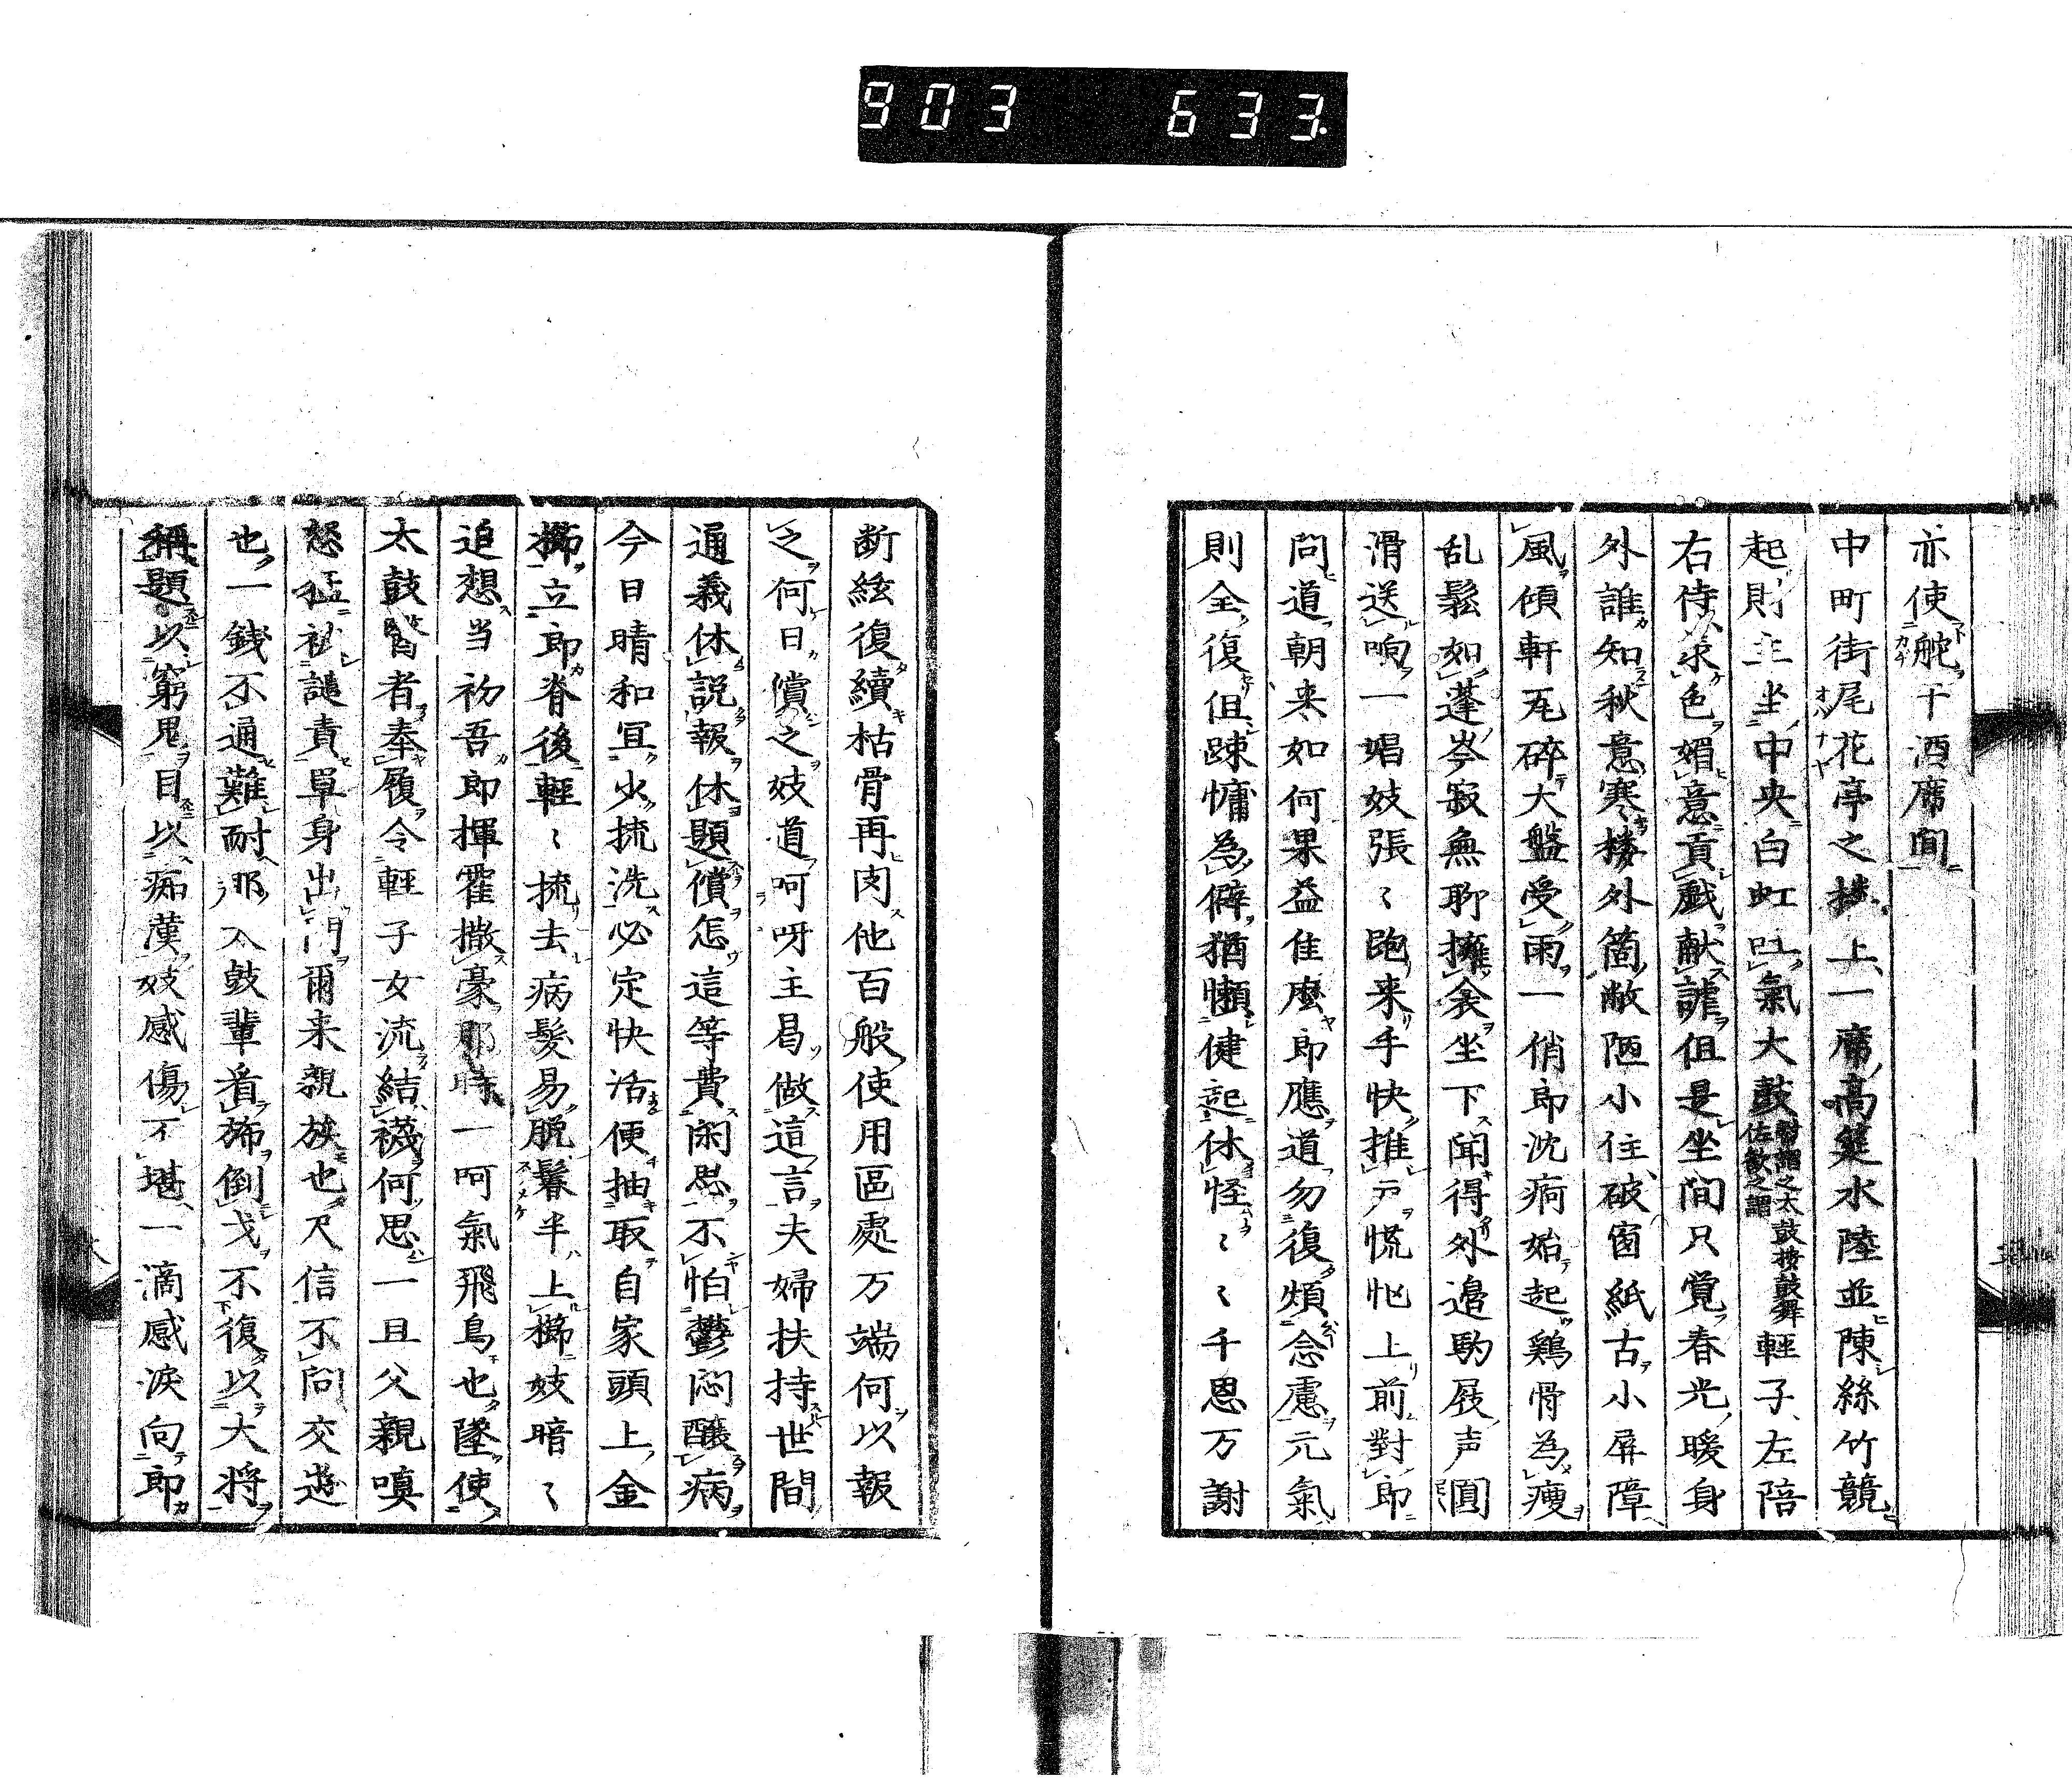 903 633.
亦使舵于酒席間
中町街尾花亭之楼上一席高筵水陸並陳絲竹競
起財主坐中央白虹吐氣大鼓 幇間謂之太鼓按鼓舞佐歓之謂 輕子左陪
右侍求色媚意貢戯献謔但是坐間只覚春光暖身
外誰知秋意寒楼外箇敝陋小住破窗紙古小屏障
風傾軒瓦砕大盤受雨一俏郎沈痾始起鶏骨為痩
乱鬆如蓬岑寂無聊擁衾坐下聞得外邉駒屐声圓
滑送响一娼妓張〻跑来手快推戸慌忙上前對郎
問道朝来如何果益佳麼郎應道勿復煩念慮元氣
則全復但踈慵為僻猶懶健起休怪〻〻千恩万謝
断絃復續枯骨再肉他百般使用區處万端何以報
之何日償之妓道呵呀主曷做這言夫婦扶持世間
通義休説報休題償怎這等費閑思不怕鬱悶醸病
今日晴和宜少梳洗必定快活便抽取自家頭上金
櫛立郎脊後輕〻梳去病髪易脱鬢半上櫛妓暗〻
追想当初吾郎揮霍撒豪那時一呵氣飛鳥也墜使
太鼓醫者奉履令輕子女流結襪何思一旦父親嗔
怒猛被譴責單身出門爾来親族也尺信不問交遊
也一銭不通難耐那入鼓輩看旆倒戈不復以大将
稱題以窮鬼目以痴漢妓感傷不堪一滴感涙向郎